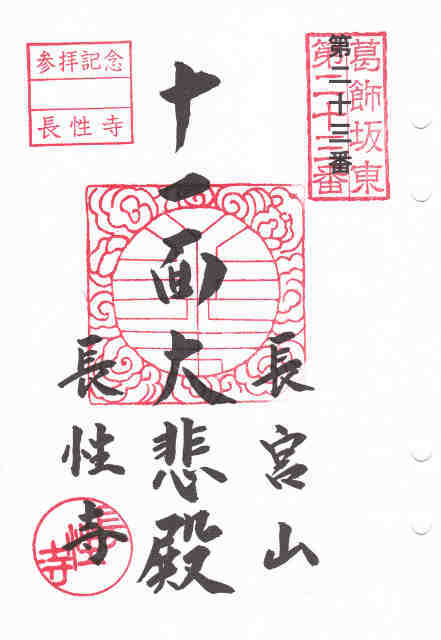 葛飾坂東
第二十三番
第二十三番
長宮山
十一面大悲殿
長性寺
参拝記念
長性寺
長性寺